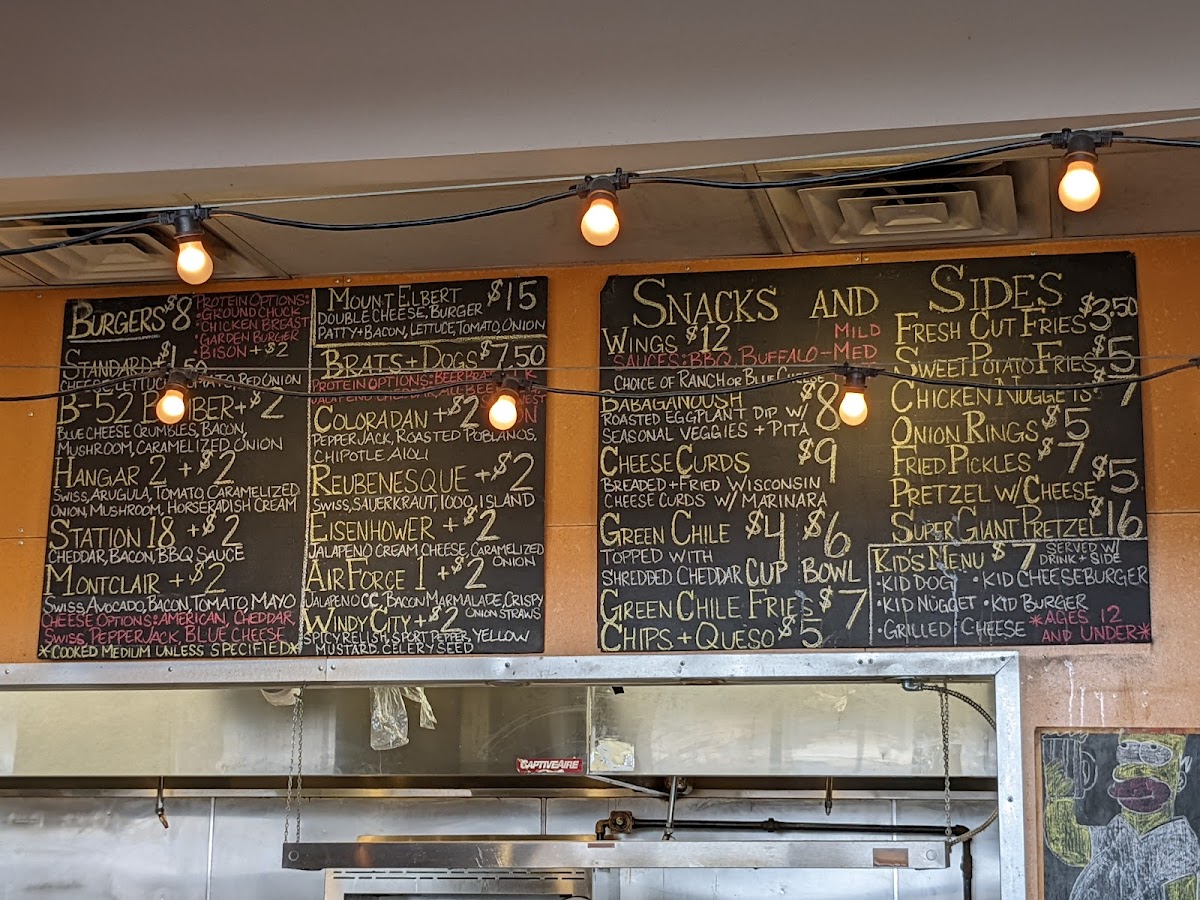 BURGERS $8
PROTEIN OPTIONS:
• GROUND CHUCK
• CHICKEN BREAST
• GARDEN BURGER
• BISON + $2
STANDARD + $1.50
CHEESE, LETTUCE, TOMATO, RED ONION
B-52 BOMBER + $2
BLUE CHEESE CRUMBLES, BACON,
MUSHROOM, CARAMELIZED ONION
HANGAR 2 + $2
SWISS, ARUGULA, TOMATO, CARAMELIZED
ONION, MUSHROOM, HORSERADISH CREAM
STATION 18 + $2
CHEDDAR, BACON, BBQ SAUCE
MONTCLAIR + $2
SWISS, AVOCADO, BACON, TOMATO, MAYO
CHEESE OPTIONS: AMERICAN, CHEDDAR,
SWISS, PEPPERJACK, BLUE CHEESE
*COOKED MEDIUM UNLESS SPECIFIED*
MOUNT ELBERT $15
DOUBLE CHEESE, BURGER
PATTY + BACON, LETTUCE, TOMATO, ONION
BRATS + DOGS $7.50
PROTEIN OPTIONS: BEER BRAT
JALAPENO CHEDDAR, ALL BEEF
COLORADAN + $2
PEPPER JACK, ROASTED POBLANOS,
CHIPOTLE AIOLI
REUBENESQUE + $2
SWISS, SAUERKRAUT, 1000 ISLAND
EISENHOWER + $2
JALAPENO CREAM CHEESE, CARAMELIZED
ONION
AIR FORCE 1 + $2
JALAPENO CC, BACON MARMALADE, CRISPY
ONION STRAWS
WINDY CITY + $2
SPICY RELISH, SPORT PEPPER, YELLOW
MUSTARD, CELERY SEED
SNACKS AND SIDES
WINGS $12
SAUCES: BBQ, BUFFALO - MED
MILD
CHOICE OF RANCH OR BLUE CHEESE
BABAGANOUSH $8
ROASTED EGGPLANT DIP W/
SEASONAL VEGGIES + PITA
CHEESE CURDS $9
BREADED + FRIED WISCONSIN
CHEESE CURDS W/ MARINARA
GREEN CHILE $4 $6
TOPPED WITH
SHREDDED CHEDDAR CUP BOWL
GREEN CHILE FRIES $7
CHIPS + QUESO $5
FRESH CUT FRIES $3.50
SWEET POTATO FRIES $5
CHICKEN NUGGETS $7
ONION RINGS $5
FRIED PICKLES $7
PRETZEL W/ CHEESE $5
SUPER GIANT PRETZEL $16
KID'S MENU $7 SERVED W/
DRINK + SIDE
• KID DOG • KID CHEESEBURGER
• KID NUGGET • KID BURGER
• GRILLED CHEESE *AGES 12
AND UNDER*
CAPTIVEAIRE